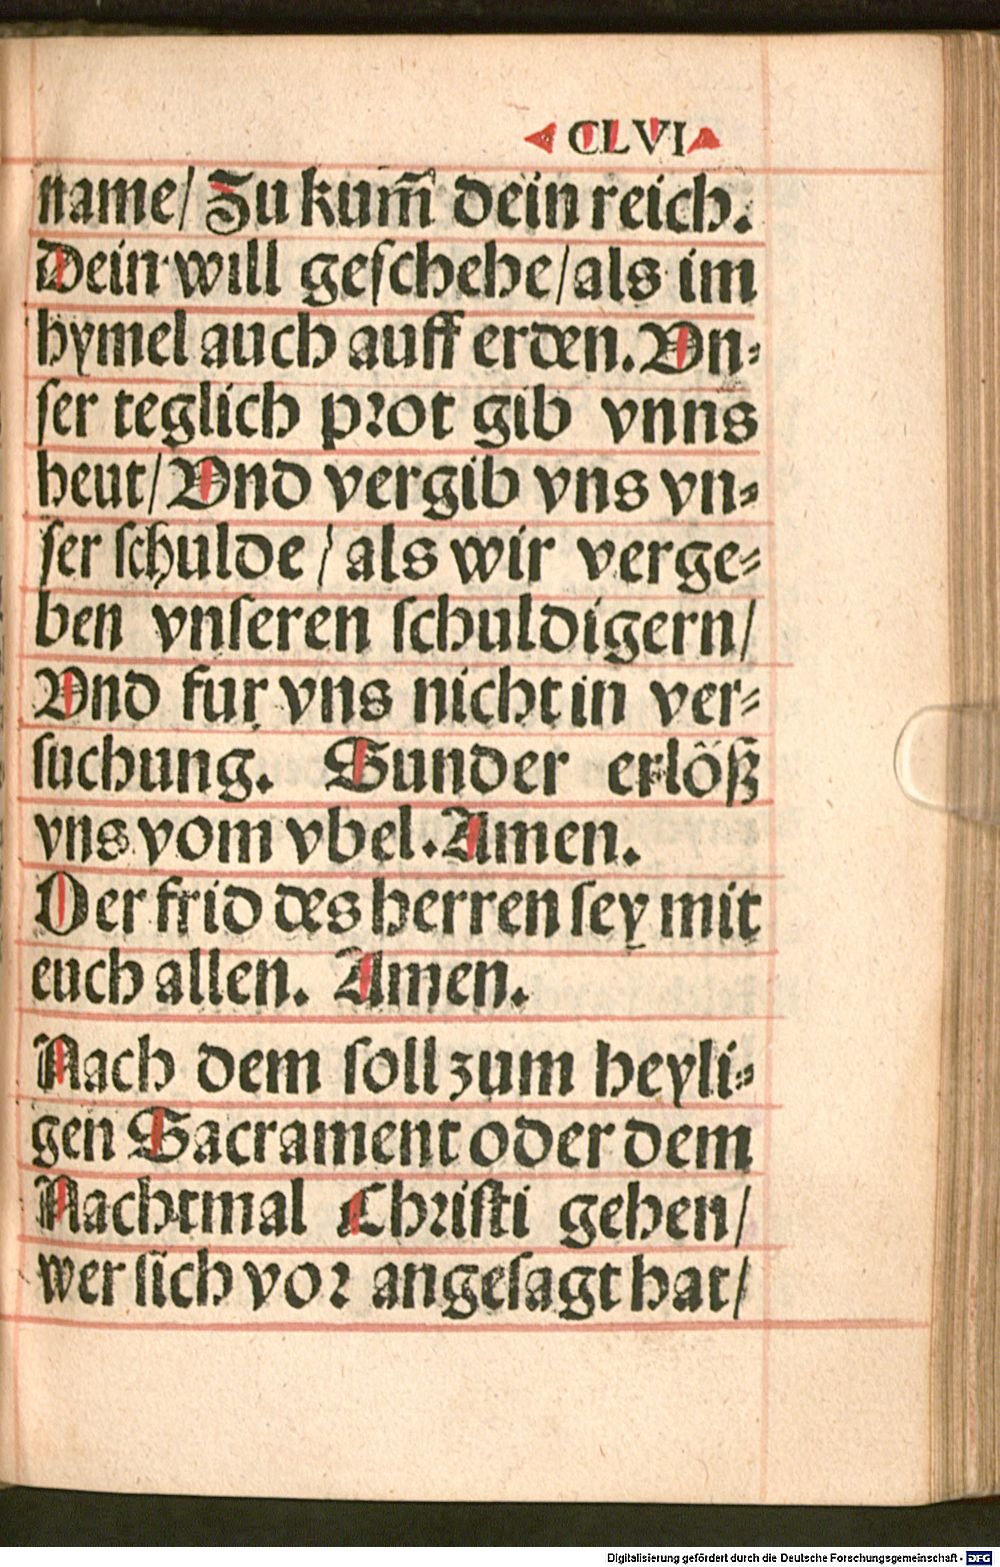 CLVI
name/ Zu kum̃ dein reich.
Dein will geſchehe/als im
hymel auch auff erden. Vn⸗
ſer teglich prot gib vnns
heut/ Vnd vergib vns vn⸗
ſer ſchulde / als wir verge⸗
ben vnſeren ſchuldigern/
Vnd fur vns nicht in ver⸗
ſuchung. Sunder erlöſz
vns vom vbel. Amen.
Der frid des herren ſey mit
euch allen. Amen.
Nach dem ſoll zum heyli⸗
gen Sacrament oder dem
Nachtmal Chriſti gehen/
wer ſich vor angeſagt hat/
Digitalisierung gefördert durch die Deutsche Forschungsgemeinschaft - DFG